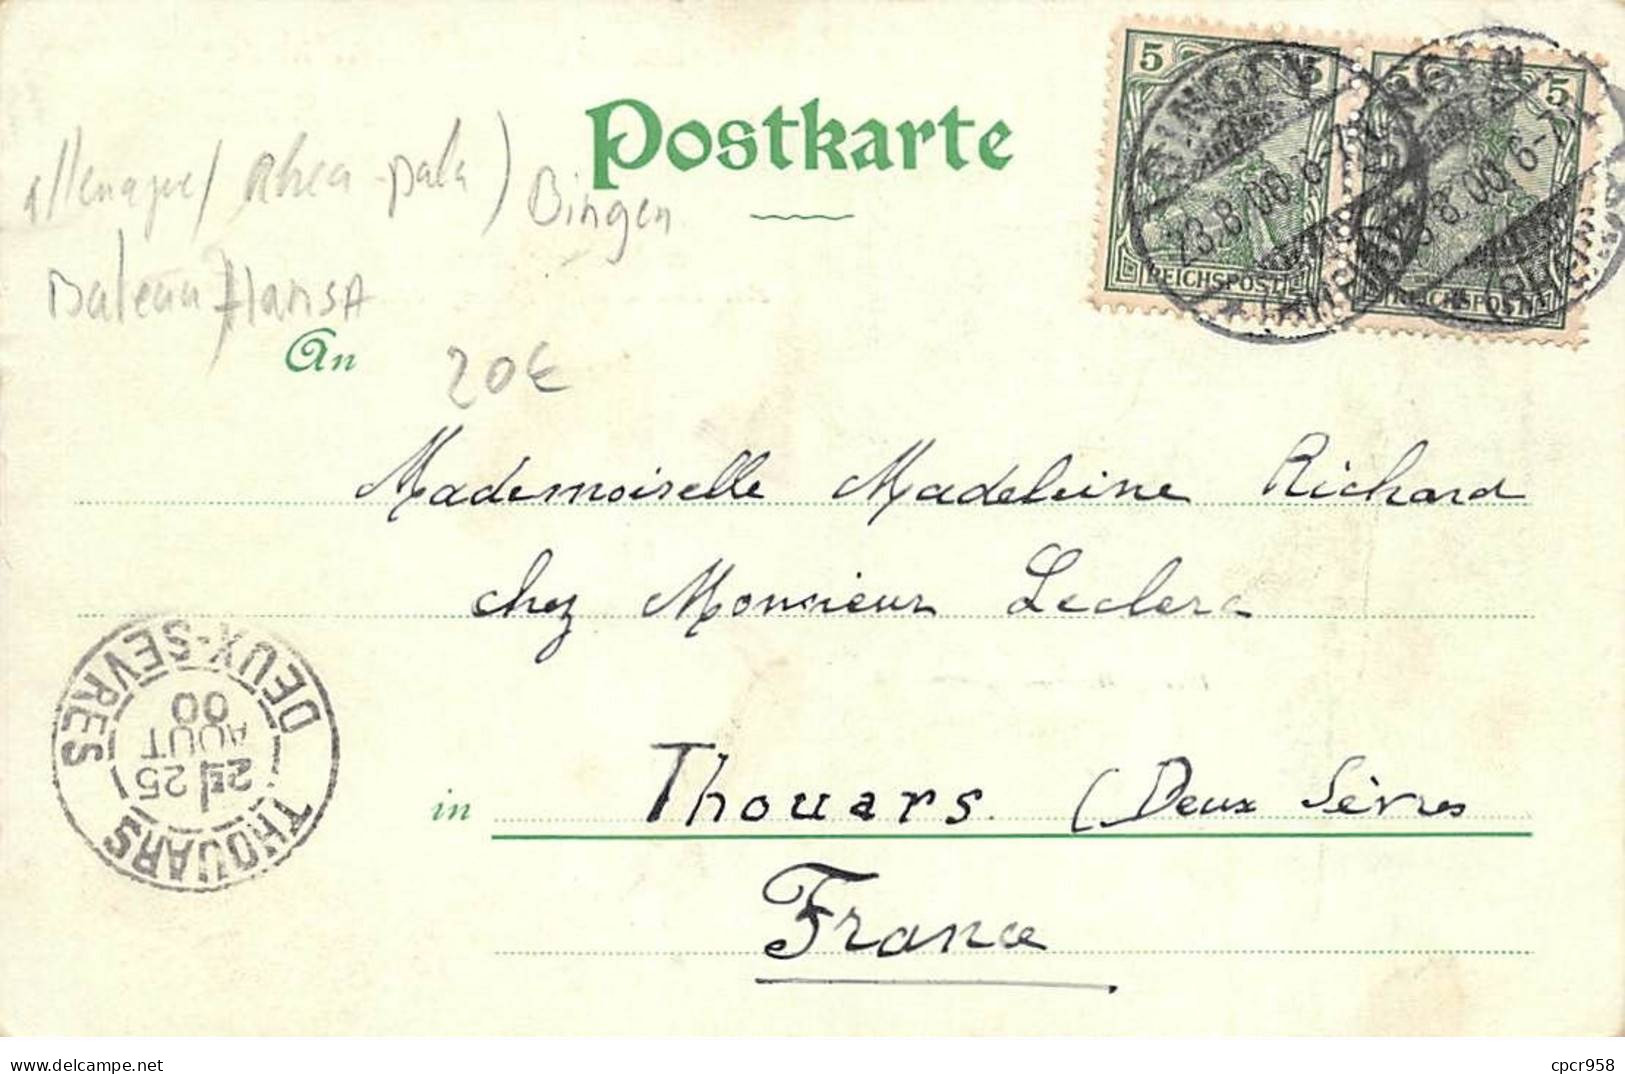 Postkarte
5 5 5 5
BINGEN
23.8.00.6-7
REICHSPOST REICHSPOST
allemagne/ Rhea-pala) Bingen
Bateau HansA
An
20€
Mademoiselle Madeleine Richard
chez Monsieur Leclerc
THOUARS
25
AOUT
00
DEUX-SEVRES
in Thouars (Deux Sèvres
France
delcampe.net
cpcr958